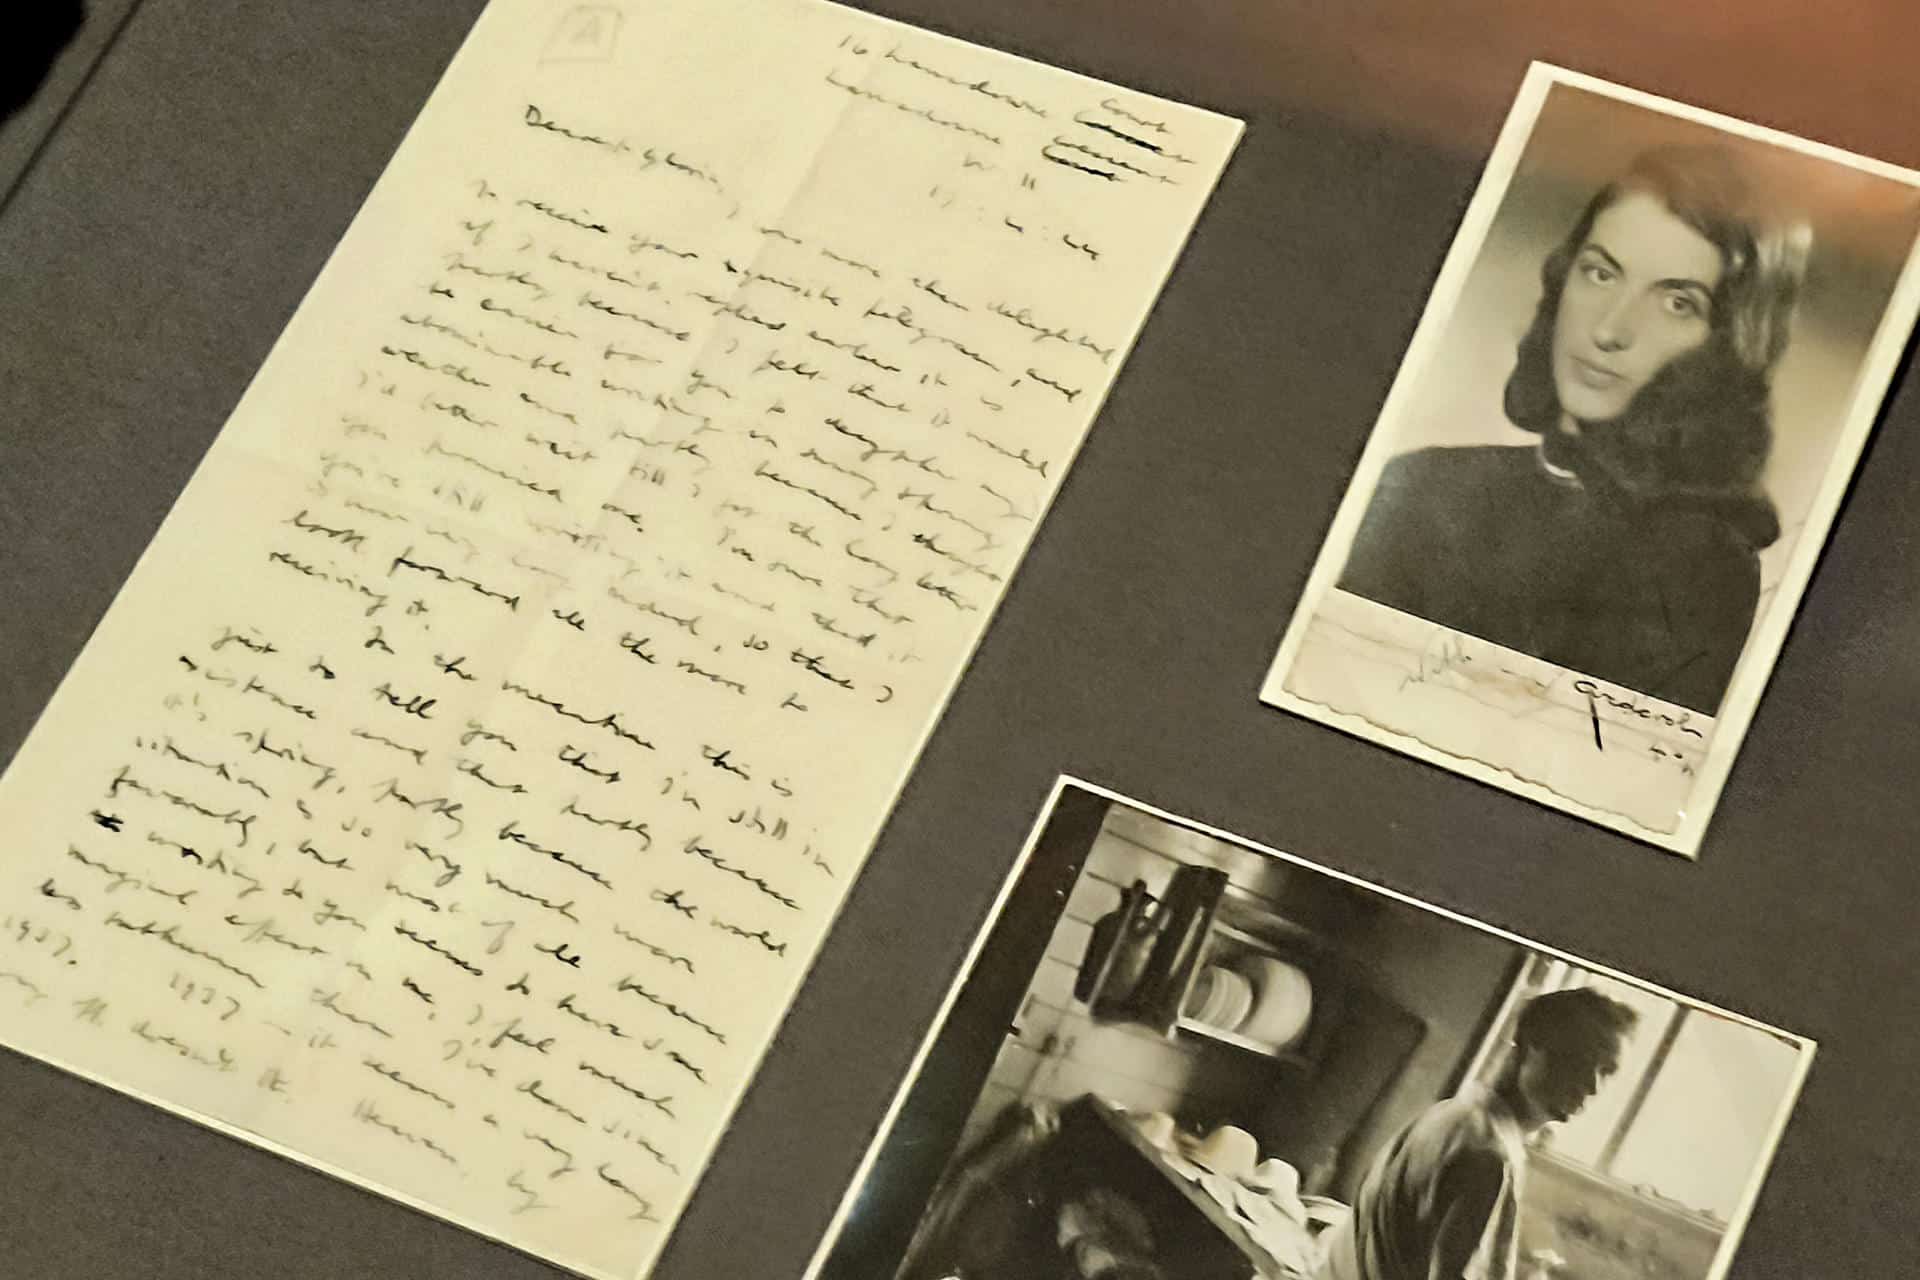 A
16 Lansdowne Court
Lansdowne
W 11
17 : 4 : 44
Dearest Gloria,
I was more than delighted
to receive your exquisite telegram, and
if I haven't replied earlier it is
partly because I felt that it would
be easier for you to decypher my
abominable writing in sunny
weather and partly because I thought
I'd better wait till I got the long letter
you promised me. I'm sure that
you're still writing it and that it
is now very long indeed, so that I
look forward all the more to
receiving it.
In the meantime, this is
just to tell you that I'm still in
existence and that partly because
it's spring, partly because the world
situation is so very much more
favourably, but most of all because
writing to you seems to have some
magical effect on me, I feel much
less than I've done since
1937. 1937 — it seems a very long
way it. Heaven,
With my